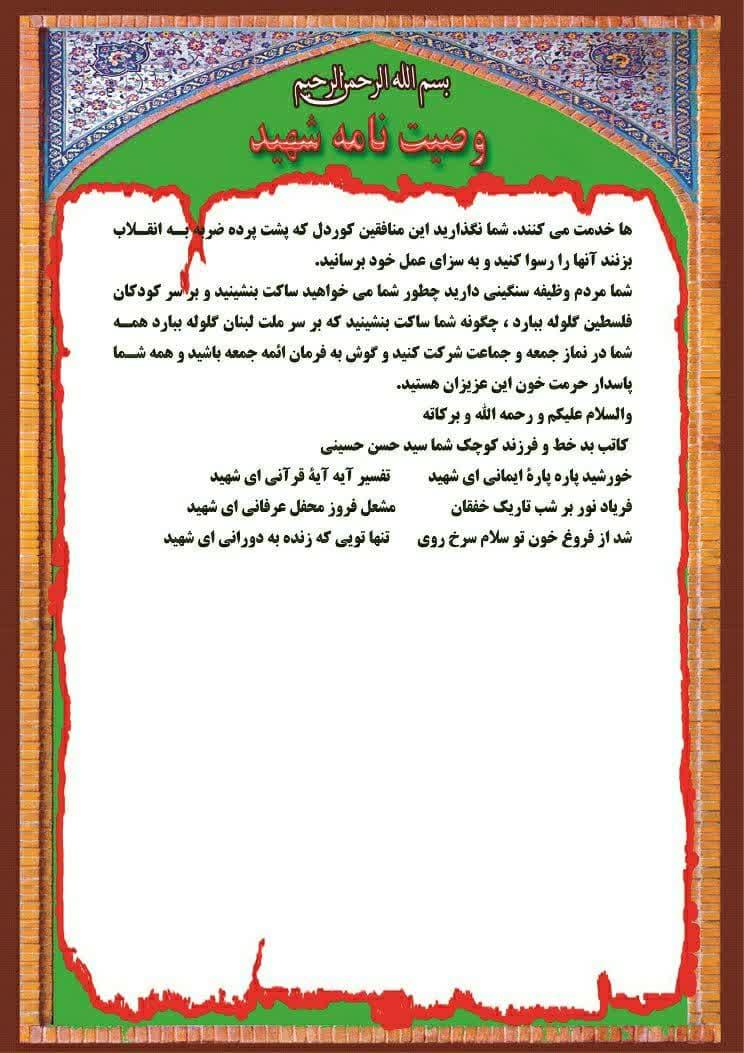 بسم الله الرحمن الرحیم
وصیت نامه شهید
ها خدمت می کنند. شما نگذارید این منافقین کوردل که پشت پرده ضربه بــه انقــلاب
بزنند آنها را رسوا کنید و به سزای عمل خود برسانید.
شما مردم وظیفه سنگینی دارید چطور شما می خواهید ساکت بنشینید و بر سر کودکان
فلسطین گلوله ببارد ، چگونه شما ساکت بنشینید که بر سر ملت لبنان گلوله ببارد همــه
شما در نماز جمعه و جماعت شرکت کنید و گوش به فرمان ائمه جمعه باشید و همه شــما
پاسدار حرمت خون این عزیزان هستید.
والسلام علیکم و رحمه الله و برکاته
کاتب بد خط و فرزند کوچک شما سید حسن حسینی
خورشید پاره پارهٔ ایمانی ای شهید تفسیر آیه آیهٔ قرآنی ای شهید
فریاد نور بر شب تاریک خفقان مشعل فروز محفل عرفانی ای شهید
شد از فروغ خون تو سلام سرخ روی تنها تویی که زنده به دورانی ای شهید